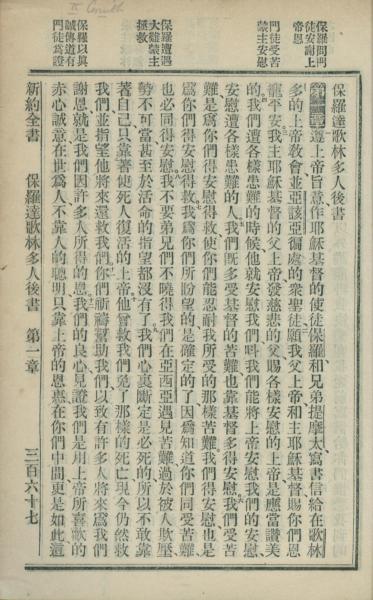 II Corinth
保羅問門
徒安謝上
帝恩
門徒受苦
蒙主安慰
保羅遭遇
大難蒙主
拯救
保羅以眞
誠傳道有
門徒爲證
保羅達歌林多人後書
第一章遵上帝旨意作耶穌基督的使徒保羅和兄弟提摩太寫書信給在歌林
多的上帝敎會並亞該亞徧處的衆聖徒願我父上帝和主耶穌基督賜你們恩
寵平安我主耶穌基督的父上帝發慈悲的父賜各樣安慰的上帝是應當讚美
的我們遭各樣患難的時候他就安慰我們呌我們能將上帝安慰我們的安慰
安慰遭各樣患難的人我們旣多受基督的苦難也靠基督多得安慰我們受苦
難是爲你們得安慰得救使你們能忍耐我所受的那樣苦難我們得安慰也是
爲你們得安慰得救我爲你們所盼望的是確定的了因爲知道你們同受苦難
也必同得安慰我不要弟兄們不曉得我們在亞西亞遇見苦難過於被人欺壓
勢不可當甚至於活命的指望都沒有了我們心裏斷定是必死的所以不敢靠
著自己只靠著使死人復活的上帝他曾救我們免了那樣的死亡現今仍然救
我們並指望他將來還救我們你們祈禱幫助我們以致有許多人將來爲我們
謝恩就是我們因許多人所得的恩我們的良心見證我們是用上帝所喜歡的
赤心誠意在世爲人不靠人的聰明只靠上帝的恩惠在你們中間更是如此這
新約全書 保羅達歌林多人後書 第一章 三百六十七